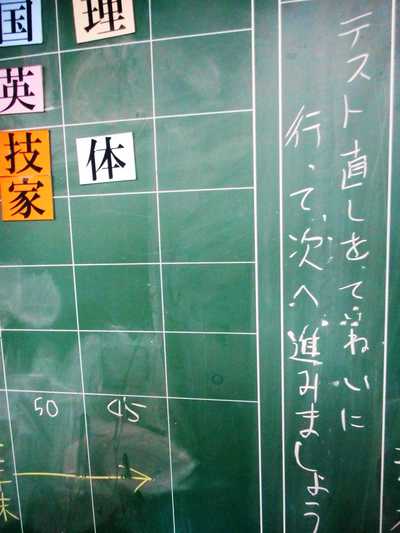 国 理
英
技家 体
50 45
テスト直しをていねいに
行って次へ進みましょう